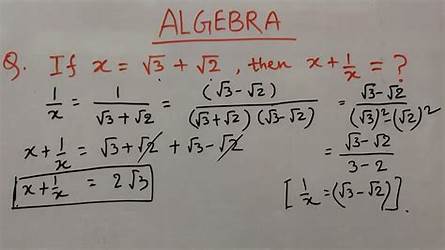 ALGEBRA
Q. If x = √3 + √2 , then x + 1/x = ?
1/x = 1/(√3 + √2) = (√3 - √2)/((√3 + √2) (√3 - √2)) = (√3 - √2)/((√3)² - (√2)²)
x + 1/x = √3 + √2 + √3 - √2 = (√3 - √2)/(3 - 2)
x + 1/x = 2√3 [ 1/x = (√3 - √2) ] .